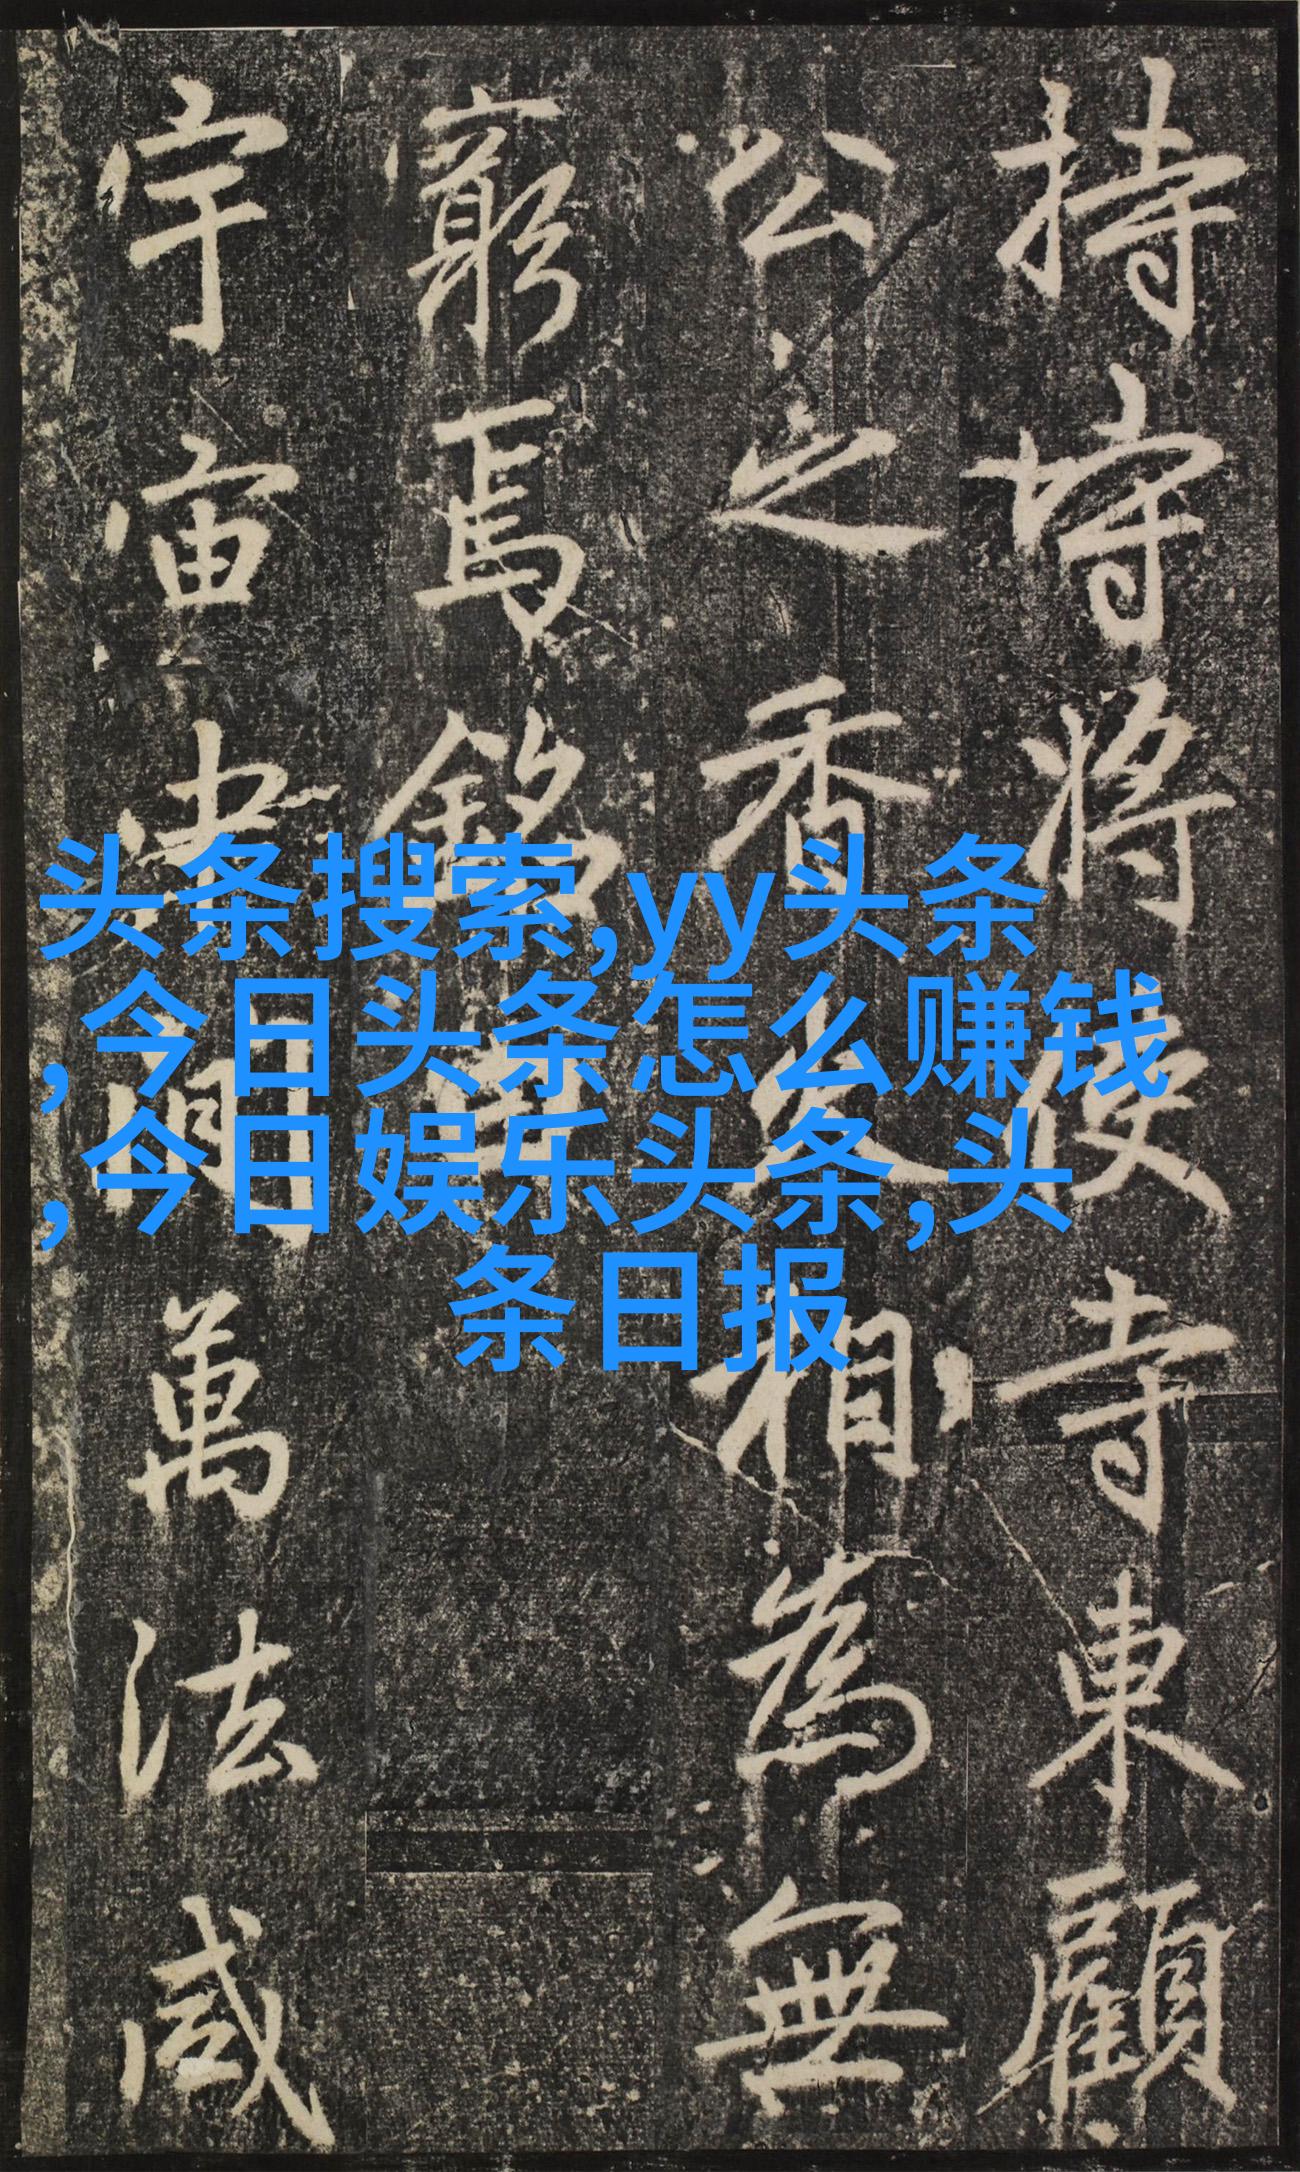 持將使寺東顧
公之香火相為無
窮焉銘曰
宇宙間萬法咸
头条搜索,yy头条
,今日头条怎么赚钱
,今日娱乐头条,头
条日报